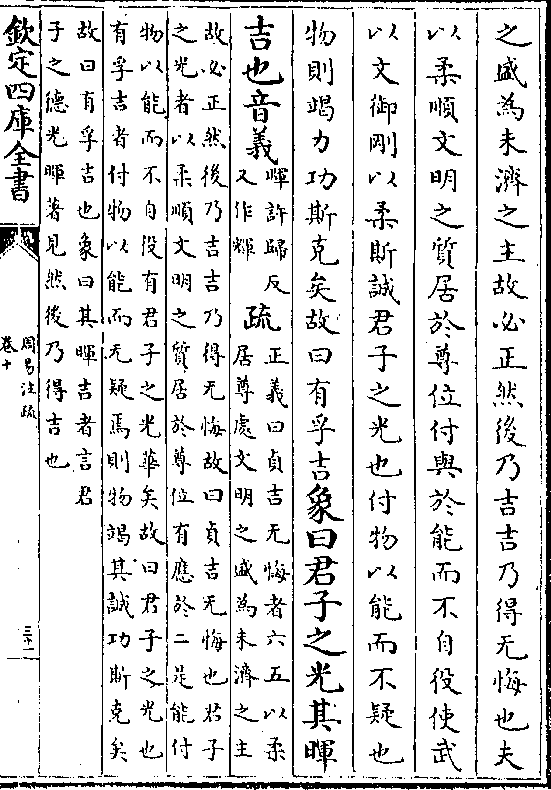 之盛為未濟之主故必正然後乃吉吉乃得无悔也夫
以柔順文明之質居於尊位付與於能而不自役使武
以文御剛以柔斯誠君子之光也付物以能而不疑也
物則竭力功斯克矣故曰有孚吉象曰君子之光其暉
吉也音義暉許歸反又作輝疏正義曰貞吉无悔者六五以柔
居尊處文明之盛為未濟之主
故必正然後乃吉吉乃得无悔故曰貞吉无悔也君子
之光者以柔順文明之質居於尊位有應於二是能付
物以能而不自役有君子之光華矣故曰君子之光也
有孚吉者付物以能而无疑焉則物竭其誠功斯克矣
故曰有孚吉也象曰其暉吉者言君
子之德光暉著見然後乃得吉也
欽定四庫全書
周易注疏
卷十
三十二